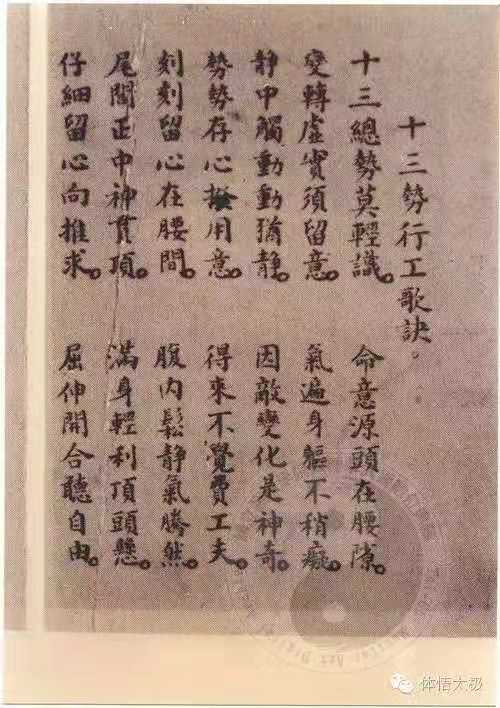 十三勢行工歌訣。
十三總勢莫輕識。命意源頭在腰隙。
變轉虛實須留意。氣遍身軀不稍癡。
静中觸動動猶静。因敵變化是神奇。
勢勢存心揆用意。得來不覺費工夫。
刻刻留心在腰間。腹内鬆静氣騰然。
尾閭正中神貫頂。滿身輕利頂頭懸。
仔細留心向推求。屈伸開合聽自由。
体悟太极